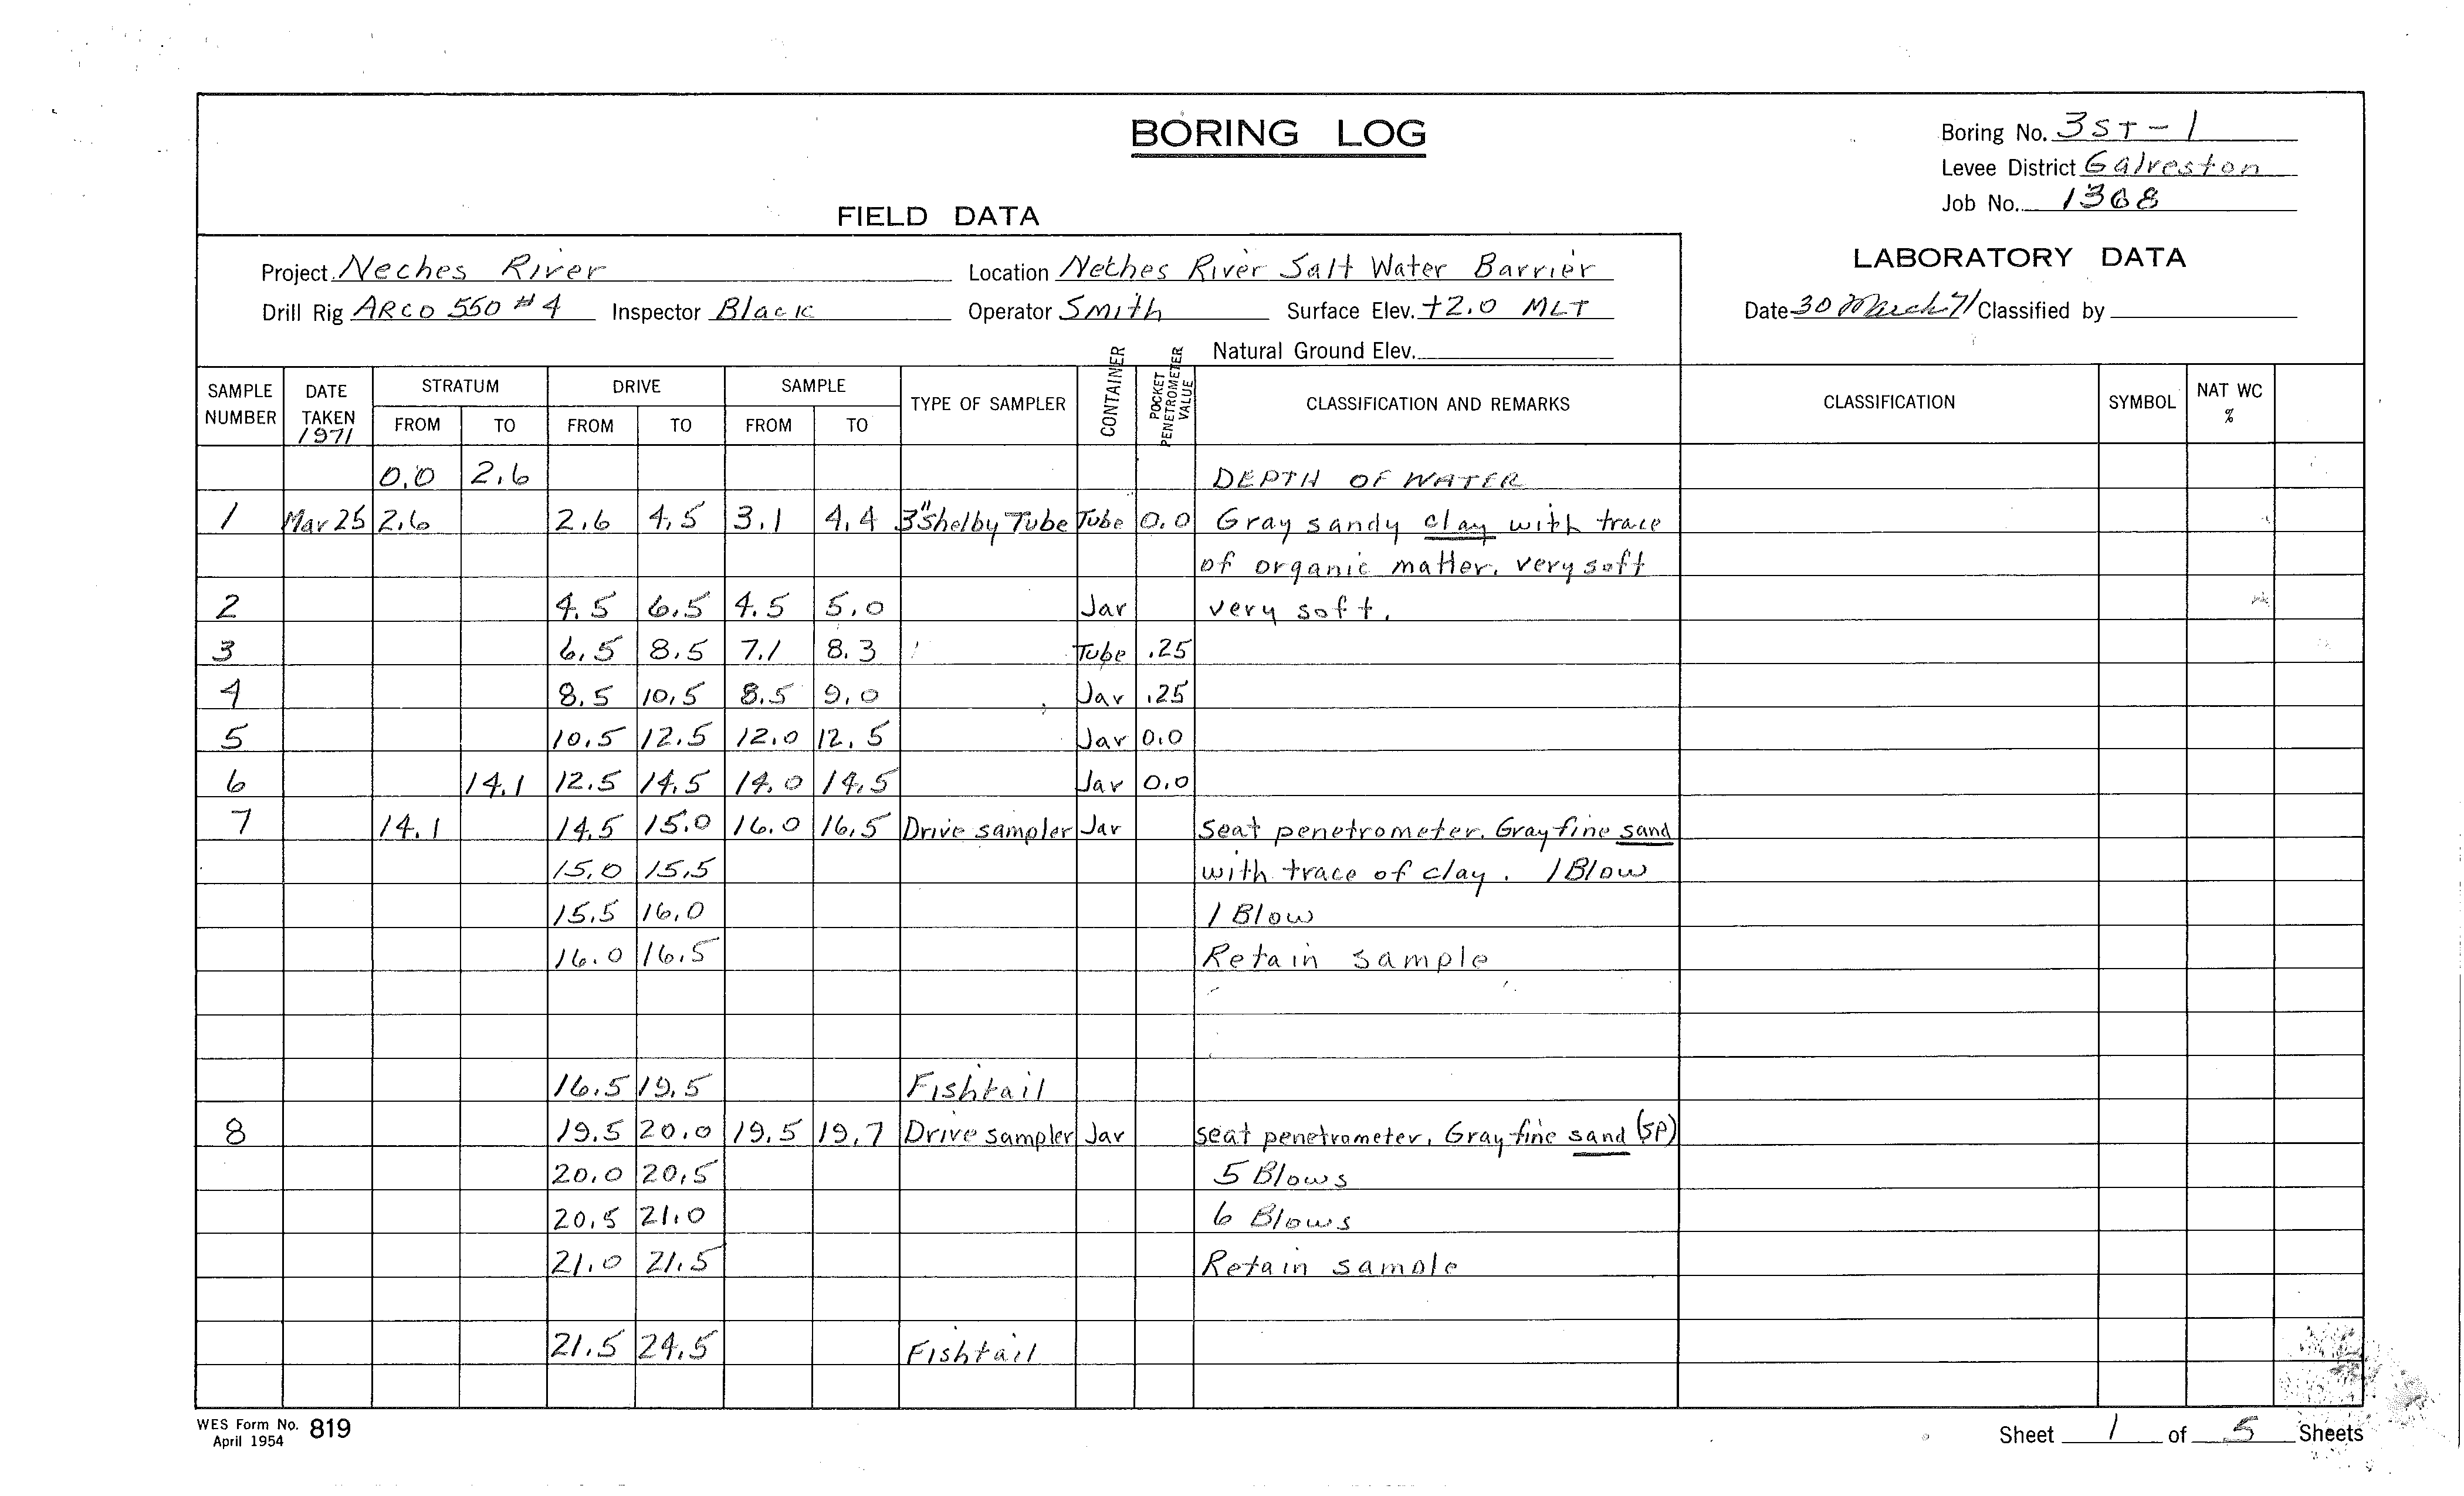 BORING LOG
Boring No. 3ST-1
Levee District Galveston
Job No. 1368
FIELD DATA
LABORATORY DATA
Project Neches River Location Neches River Salt Water Barrier
Drill Rig ARCO 550 #4 Inspector Black Operator Smith Surface Elev. +2.0 MLT Date 30 March 71 Classified by
Natural Ground Elev.
SAMPLE NUMBER DATE TAKEN 1971 STRATUM FROM TO DRIVE FROM TO SAMPLE FROM TO TYPE OF SAMPLER CONTAINER POCKET PENETROMETER VALUE CLASSIFICATION AND REMARKS CLASSIFICATION SYMBOL NAT WC %
0.0 2.6 DEPTH OF WATER
1 Mar 25 2.6 2.6 4.5 3.1 4.4 3" Shelby Tube Tube 0.0 Gray sandy clay with trace
of organic matter. very soft
2 4.5 6.5 4.5 5.0 Jar very soft.
3 6.5 8.5 7.1 8.3 Tube .25
4 8.5 10.5 8.5 9.0 Jar .25
5 10.5 12.5 12.0 12.5 Jar 0.0
6 14.1 12.5 14.5 14.0 14.5 Jar 0.0
7 14.1 14.5 15.0 16.0 16.5 Drive sampler Jar Seat penetrometer. Gray fine sand
15.0 15.5 with trace of clay. 1 Blow
15.5 16.0 1 Blow
16.0 16.5 Retain sample
16.5 19.5 Fishtail
8 19.5 20.0 19.5 19.7 Drive sampler Jar seat penetrometer, Gray fine sand (SP)
20.0 20.5 5 Blows
20.5 21.0 6 Blows
21.0 21.5 Retain sample
21.5 24.5 Fishtail
WES Form No. 819
April 1954
Sheet 1 of 5 Sheets